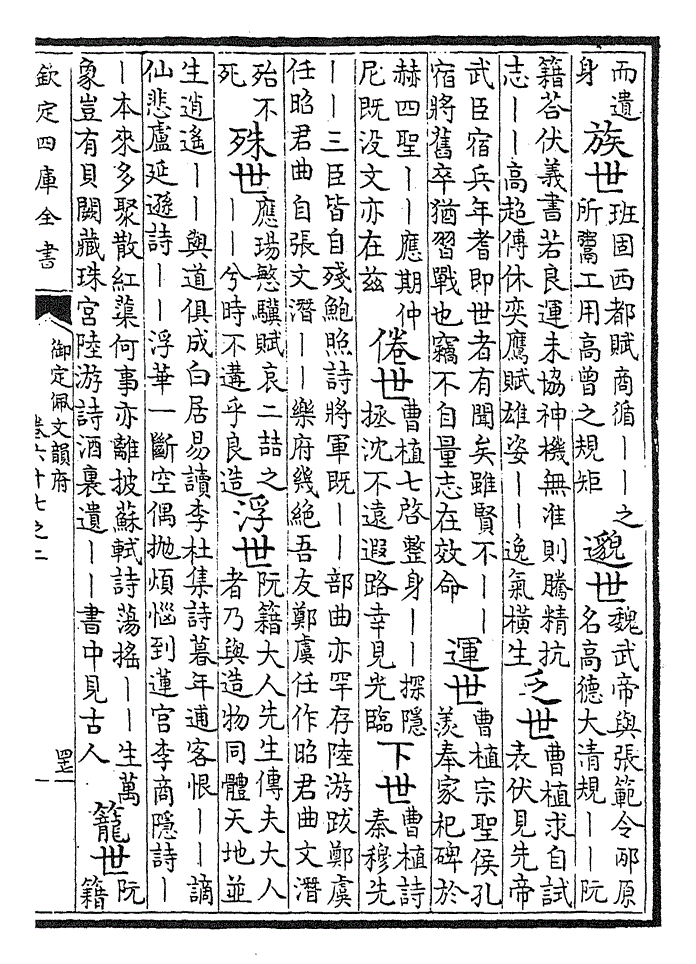 而遺
身
族世
班固西都賦商循——之
所鬻工用高曾之規矩
邈世
魏武帝與張範令邴原
名高德大清規——阮
籍荅伏義書若良運未協神機無准則騰精抗
志——高超傅休奕鷹賦雄姿——逸氣橫生
乏世
曹植求自試
表伏見先帝
武臣宿兵年耆即世者有聞矣雖賢不——
宿將舊卒猶習戰也竊不自量志在效命
運世
曹植宗聖侯孔
羨奉家祀碑於
赫四聖——應期仲
尼既没文亦在兹
倦世
曹植七啓整身——探隱
拯沈不遠遐路幸見光臨
下世
曹植詩
秦穆先
——三臣皆自殘鮑照詩將軍既——部曲亦罕存陸游跋鄭虞
任昭君曲自張文潛——樂府幾絶吾友鄭虞任作昭君曲文潛
殆不
死
殊世
應瑒慜驥賦哀二喆之
——兮時不遘乎良造
浮世
阮籍大人先生傳夫大人
者乃與造物同體天地並
生逍遙——與道俱成白居易讀李杜集詩暮年逋客恨——謫
仙悲盧延遜詩——浮華一斷空偶抛煩惱到蓮宮李商隱詩—
—本來多聚散紅蕖何事亦離披蘇軾詩蕩搖——生萬
象豈有貝闕藏珠宮陸游詩酒裏遺——書中見古人
籠世
阮
籍
欽定四庫全書
御定佩文韻府
卷六十七之二